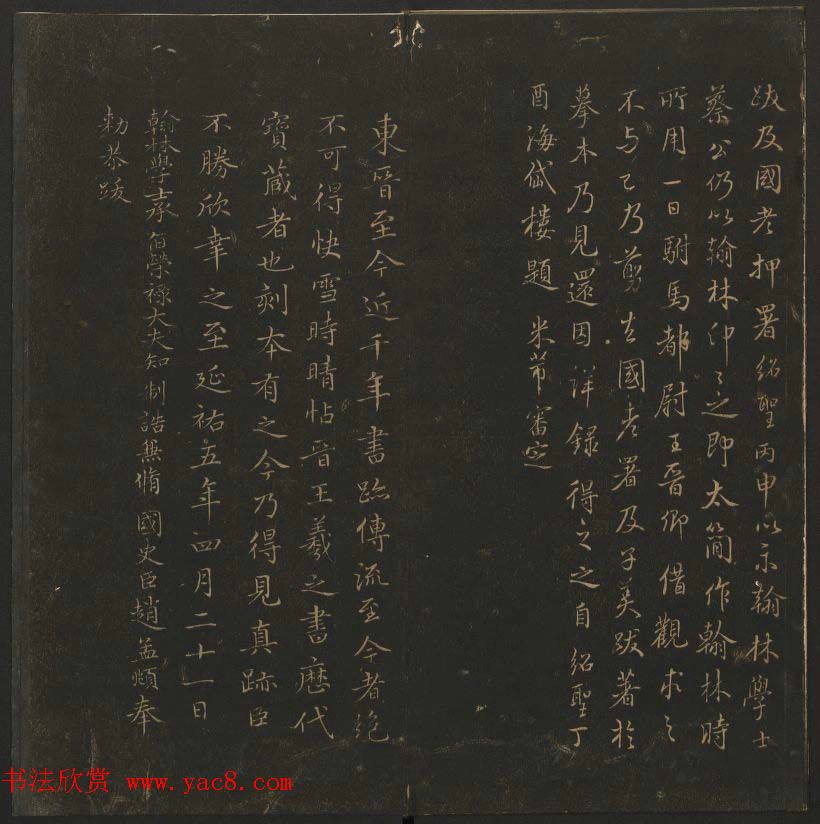 跋及國老押署紹聖丙申以示翰林學士
蔡公仍以翰林印〻之即太簡作翰林時
所用一日駙馬都尉王晉卿借觀求之
不与已乃剪去國老署及子美跋著於
摹本乃見還因詳錄得之之自紹聖丁
酉海岱樓題 米芾審定
東晉至今近千年書跡傳流至今者絶
不可得快雪時晴帖晉王羲之書歷代
寶藏者也刻本有之今乃得見真跡臣
不勝欣幸之至延祐五年四月二十一日
翰林學士承旨榮祿大夫知制誥兼脩國史臣趙孟頫奉
勑恭跋
书法欣赏 www.yac8.com